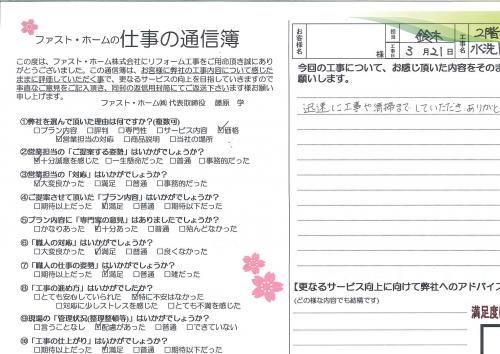 ファスト・ホームの仕事の通信簿
この度は、ファスト・ホーム株式会社にリフォーム工事をご用命頂き誠にありがとうございました。この通信簿は、お客様に弊社の工事内容について感じたままに評価していただく事で、更なるサービスの向上を目指していきますので
率直なご意見をご記入頂き、同封の返信用封筒にてご返送下さいます様お願い申し上げます。
ファスト・ホーム㈱ 代表取締役 藤原 学
①弊社を選んで頂いた理由は何ですか?(複数可)
□プラン内容 □評判 □専門性 □サービス内容 ☑価格
□営業担当の対応 □商品内容 □当社の場所
②営業担当の「ご提案する姿勢」はいかがでしょうか?
☑十分誠意を感じた □一生懸命だった □普通 □事務的だった
③営業担当の「対応」はいかがでしょうか?
☑大変良かった □満足 □普通 □事務的だった
④ご提案させて頂いた「プラン内容」はいかがでしょうか?
□期待以上だった ☑満足 □普通 □期待以下だった
⑤プラン内容に「専門家の意見」はありましたでしょうか?
□かなりあった ☑十分あった □普通 □殆んどなかった
⑥「職人の対応」はいかがでしょうか?
□大変良かった ☑満足 □普通 □良くなかった
⑦「職人の仕事の姿勢」はいかがでしょうか?
□期待以上だった ☑満足 □普通 □雑だった
⑧「工事の進め方」はいかがでしたか?
□とても安心していられた ☑特に不安はなかった
□対応に少しストレスを感じた □とても不満を感じた
⑨現場の「管理状況(整理整頓等)」はいかがでしょうか?
□言うことなし ☑配慮があった □普通 □できていない
⑩「工事の仕上がり」はいかがでしょうか?
□期待以上だった ☑満足 □普通 □期待以下だった
お客様名
様
担当
鈴木
工事日
3月21日
2階
水洗
今回の工事について、お感じ頂いた内容をそのま
願いします。
迅速に工事や清掃までしていただきありがと
【更なるサービス向上に向けて弊社へのアドバイス
(どの様な内容でも結構です)
満足度